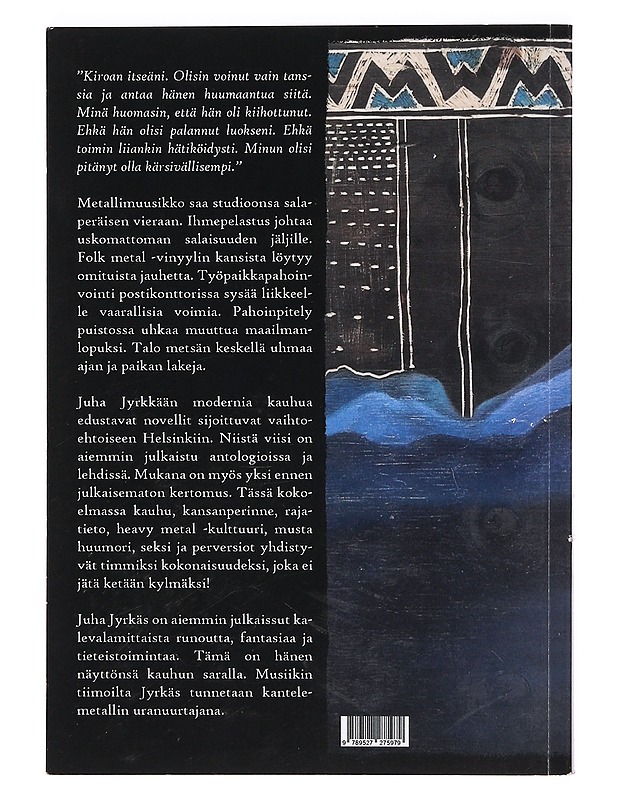 ”Kiroan itseäni. Olisin voinut vain tans-
sia ja antaa hänen huumaantua siitä.
Minä huomasin, että hän oli kiihottunut.
Ehkä hän olisi palannut luokseni. Ehkä
toimin liiankin hätiköidysti. Minun olisi
pitänyt olla kärsivällisempi.”
Metallimuusikko saa studioonsa sala-
peräisen vieraan. Ihmepelastus johtaa
uskomattoman salaisuuden jäljille.
Folk metal -vinyylin kansista löytyy
omituista jauhetta. Työpaikkapahoin-
vointi postikonttorissa sysää liikkeel-
le vaarallisia voimia. Pahoinpitely
puistossa uhkaa muuttua maailman-
lopuksi. Talo metsän keskellä uhmaa
ajan ja paikan lakeja.
Juha Jyrkkään modernia kauhua
edustavat novellit sijoittuvat vaihto-
ehtoiseen Helsinkiin. Niistä viisi on
aiemmin julkaistu antologioissa ja
lehdissä. Mukana on myös yksi ennen
julkaisematon kertomus. Tässä koko-
elmassa kauhu, kansanperinne, raja-
tieto, heavy metal -kulttuuri, musta
huumori, seksi ja perversiot yhdisty-
vät timmiksi kokonaisuudeksi, joka ei
jätä ketään kylmäksi!
Juha Jyrkäs on aiemmin julkaissut ka-
levalamittaista runoutta, fantasiaa ja
tieteistoimintaa. Tämä on hänen
näyttönsä kauhun saralla. Musiikin
tiimoilta Jyrkäs tunnetaan kantele-
metallin uranuurtajana.
9 789527 275979